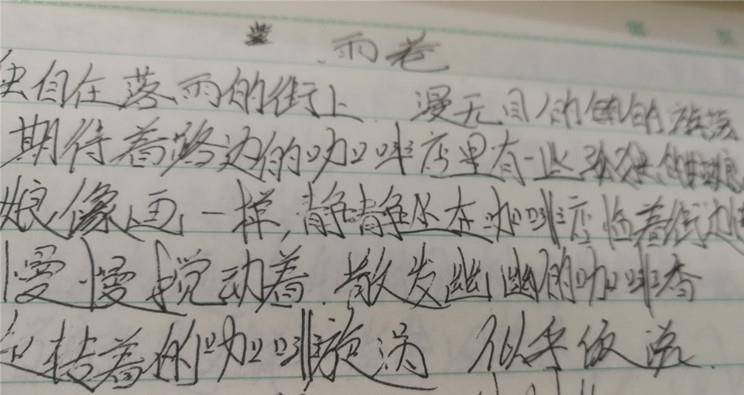 雨巷
自在落雨的街上 漫无目的的
期待着路边的咖啡店里有一些
娘像画一样,静静坐在咖啡店临着街边
慢慢搅动着 散发幽幽的咖啡香
着的咖啡旋涡 似乎